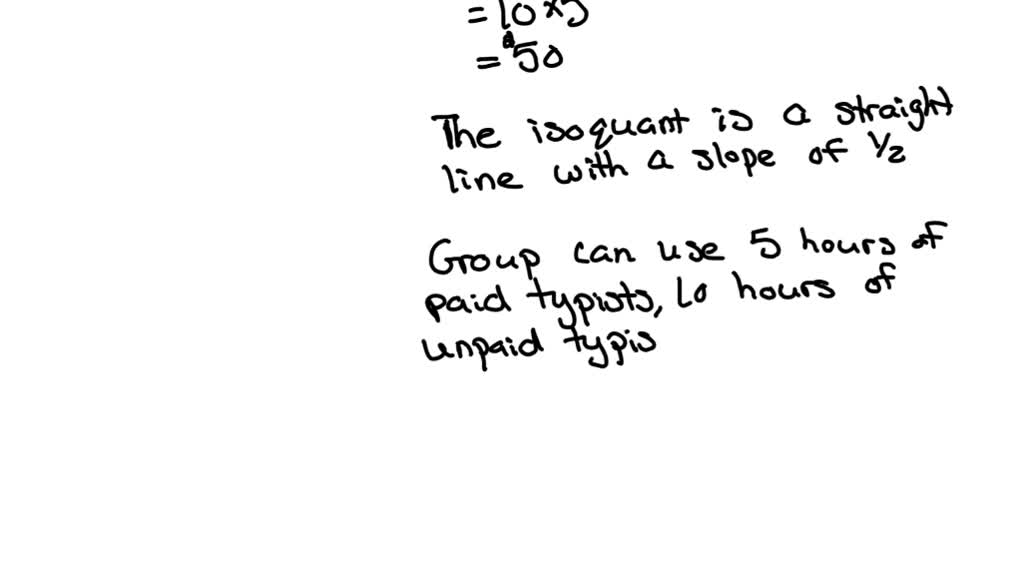 = 10 x 5
= $50
The isoquant is a straight
line with a slope of 1/2
Group can use 5 hours of
paid typists, 10 hours of
unpaid typis